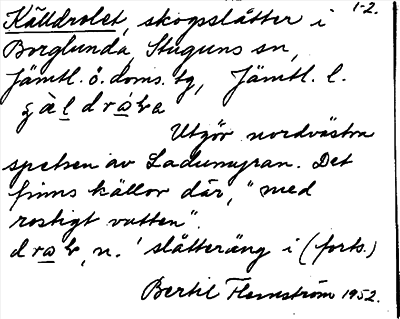 Källdrolet, skogsslåtter i 1-2.
Borglunda, Stuguns sn,
Jämtl. ö. doms. tg, Jämtl. l.
Utgör nordvästra
spetsen av Ladumyran. Det
finns källor där, "med
rostigt vatten".
n. 'slåtteräng i (forts.)
Bertil Flemström 1952.